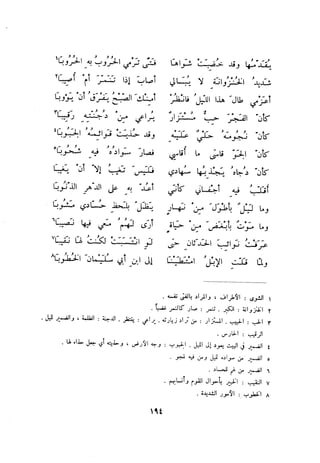 يقدمها وقد خضبت شواها فتى ترمي الحروب به الحروبا
شديد الخنزوانة لا يبالي أصاب إذا تنمر أم أصيبا
أعزمي طال هذا الليل فانظر أمنك الصبح يفرق أن يؤوبا
كأن الفجر حب مستزار يراعي من دجنته رقيبا
كأن نجومه حلي عليه وقد حذيت قوائمه الجبوبا
كأن الجو قاسى ما أقاسي فصار سواده فيه شحوبا
كأن دجاه يجذبها سهادي فليس تغيب إلا أن يغيبا
أقلب فيه أجفاني كأني أعد به على الدهر الذنوبا
وما ليل بأطول من نهار يظل بلحظ حسادي مشوبا
وما موت بأبغض من حياة أرى لهم معي فيها نصيبا
عرفت نوائب الحدثان حتى لو انتسبت لكنت لها نقيبا
ولما قلت الإبل امتطينا إلى ابن أبي سليمان الخطوبا
١ الشوى : الأطراف ، والمراد بالفتى نفسه .
٢ الخنزوانة : الكبر . تنمر : صار كالنمر غضباً .
٣ الحب : الحبيب . المستزار : من تراد زيارته . يراعي : ينتظر . الدجنة : الظلمة ، والضمير لليل .
الرقيب : الحارس .
٤ الضمير في البيت يعود إلى الليل . الجبوب : وجه الأرض ، وحذيته أي جعل حذاء لها .
٥ الضمير من سواده لليل ومن فيه للجو .
٦ الضمير من لهم للحساد .
٧ النقيب : الخبير بأحوال القوم وأنسابهم .
٨ الخطوب : الأمور الشديدة .
١٩٤